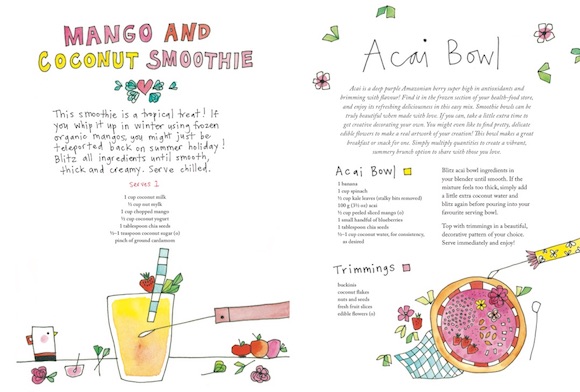 MANGO AND
COCONUT SMOOTHIE
This smoothie is a tropical treat! If
you whip it up in winter using frozen
organic mangos, you might just be
teleported back on summer holiday!
Blitz all ingredients until smooth,
thick and creamy. Serve chilled.
Serves 2
1 cup coconut milk
½ cup nut mylk
1 cup chopped mango
½ cup coconut yogurt
1 tablespoon chia seeds
½–1 teaspoon coconut sugar (o)
pinch of ground cardamom
Acai Bowl
Acai is a deep purple Amazonian berry super high in antioxidants and
brimming with flavour! Find it in the frozen section of your health-food store,
and enjoy its refreshing deliciousness in this easy mix. Smoothie bowls can be
truly beautiful when made with love. If you can, take a little extra time to
get creative decorating your own. You might even like to find pretty, delicate
edible flowers to make a real artwork of your creation! This bowl makes a great
breakfast or snack for one. Simply multiply quantities to create a vibrant,
summery brunch option to share with those you love.
Acai Bowl
1 banana
1 cup spinach
½ cup kale leaves (stalky bits removed)
100 g (3½ oz) acai
½ cup peeled sliced mango (o)
1 small handful of blueberries
1 tablespoon chia seeds
½–1 cup coconut water, for consistency,
as desired
Trimmings
buckinis
coconut flakes
nuts and seeds
fresh fruit slices
edible flowers (o)
Blitz acai bowl ingredients in
your blender until smooth. If the
mixture feels too thick, simply add
a little extra coconut water and
blitz again before pouring into your
favourite serving bowl.
Top with trimmings in a beautiful,
decorative pattern of your choice.
Serve immediately and enjoy!